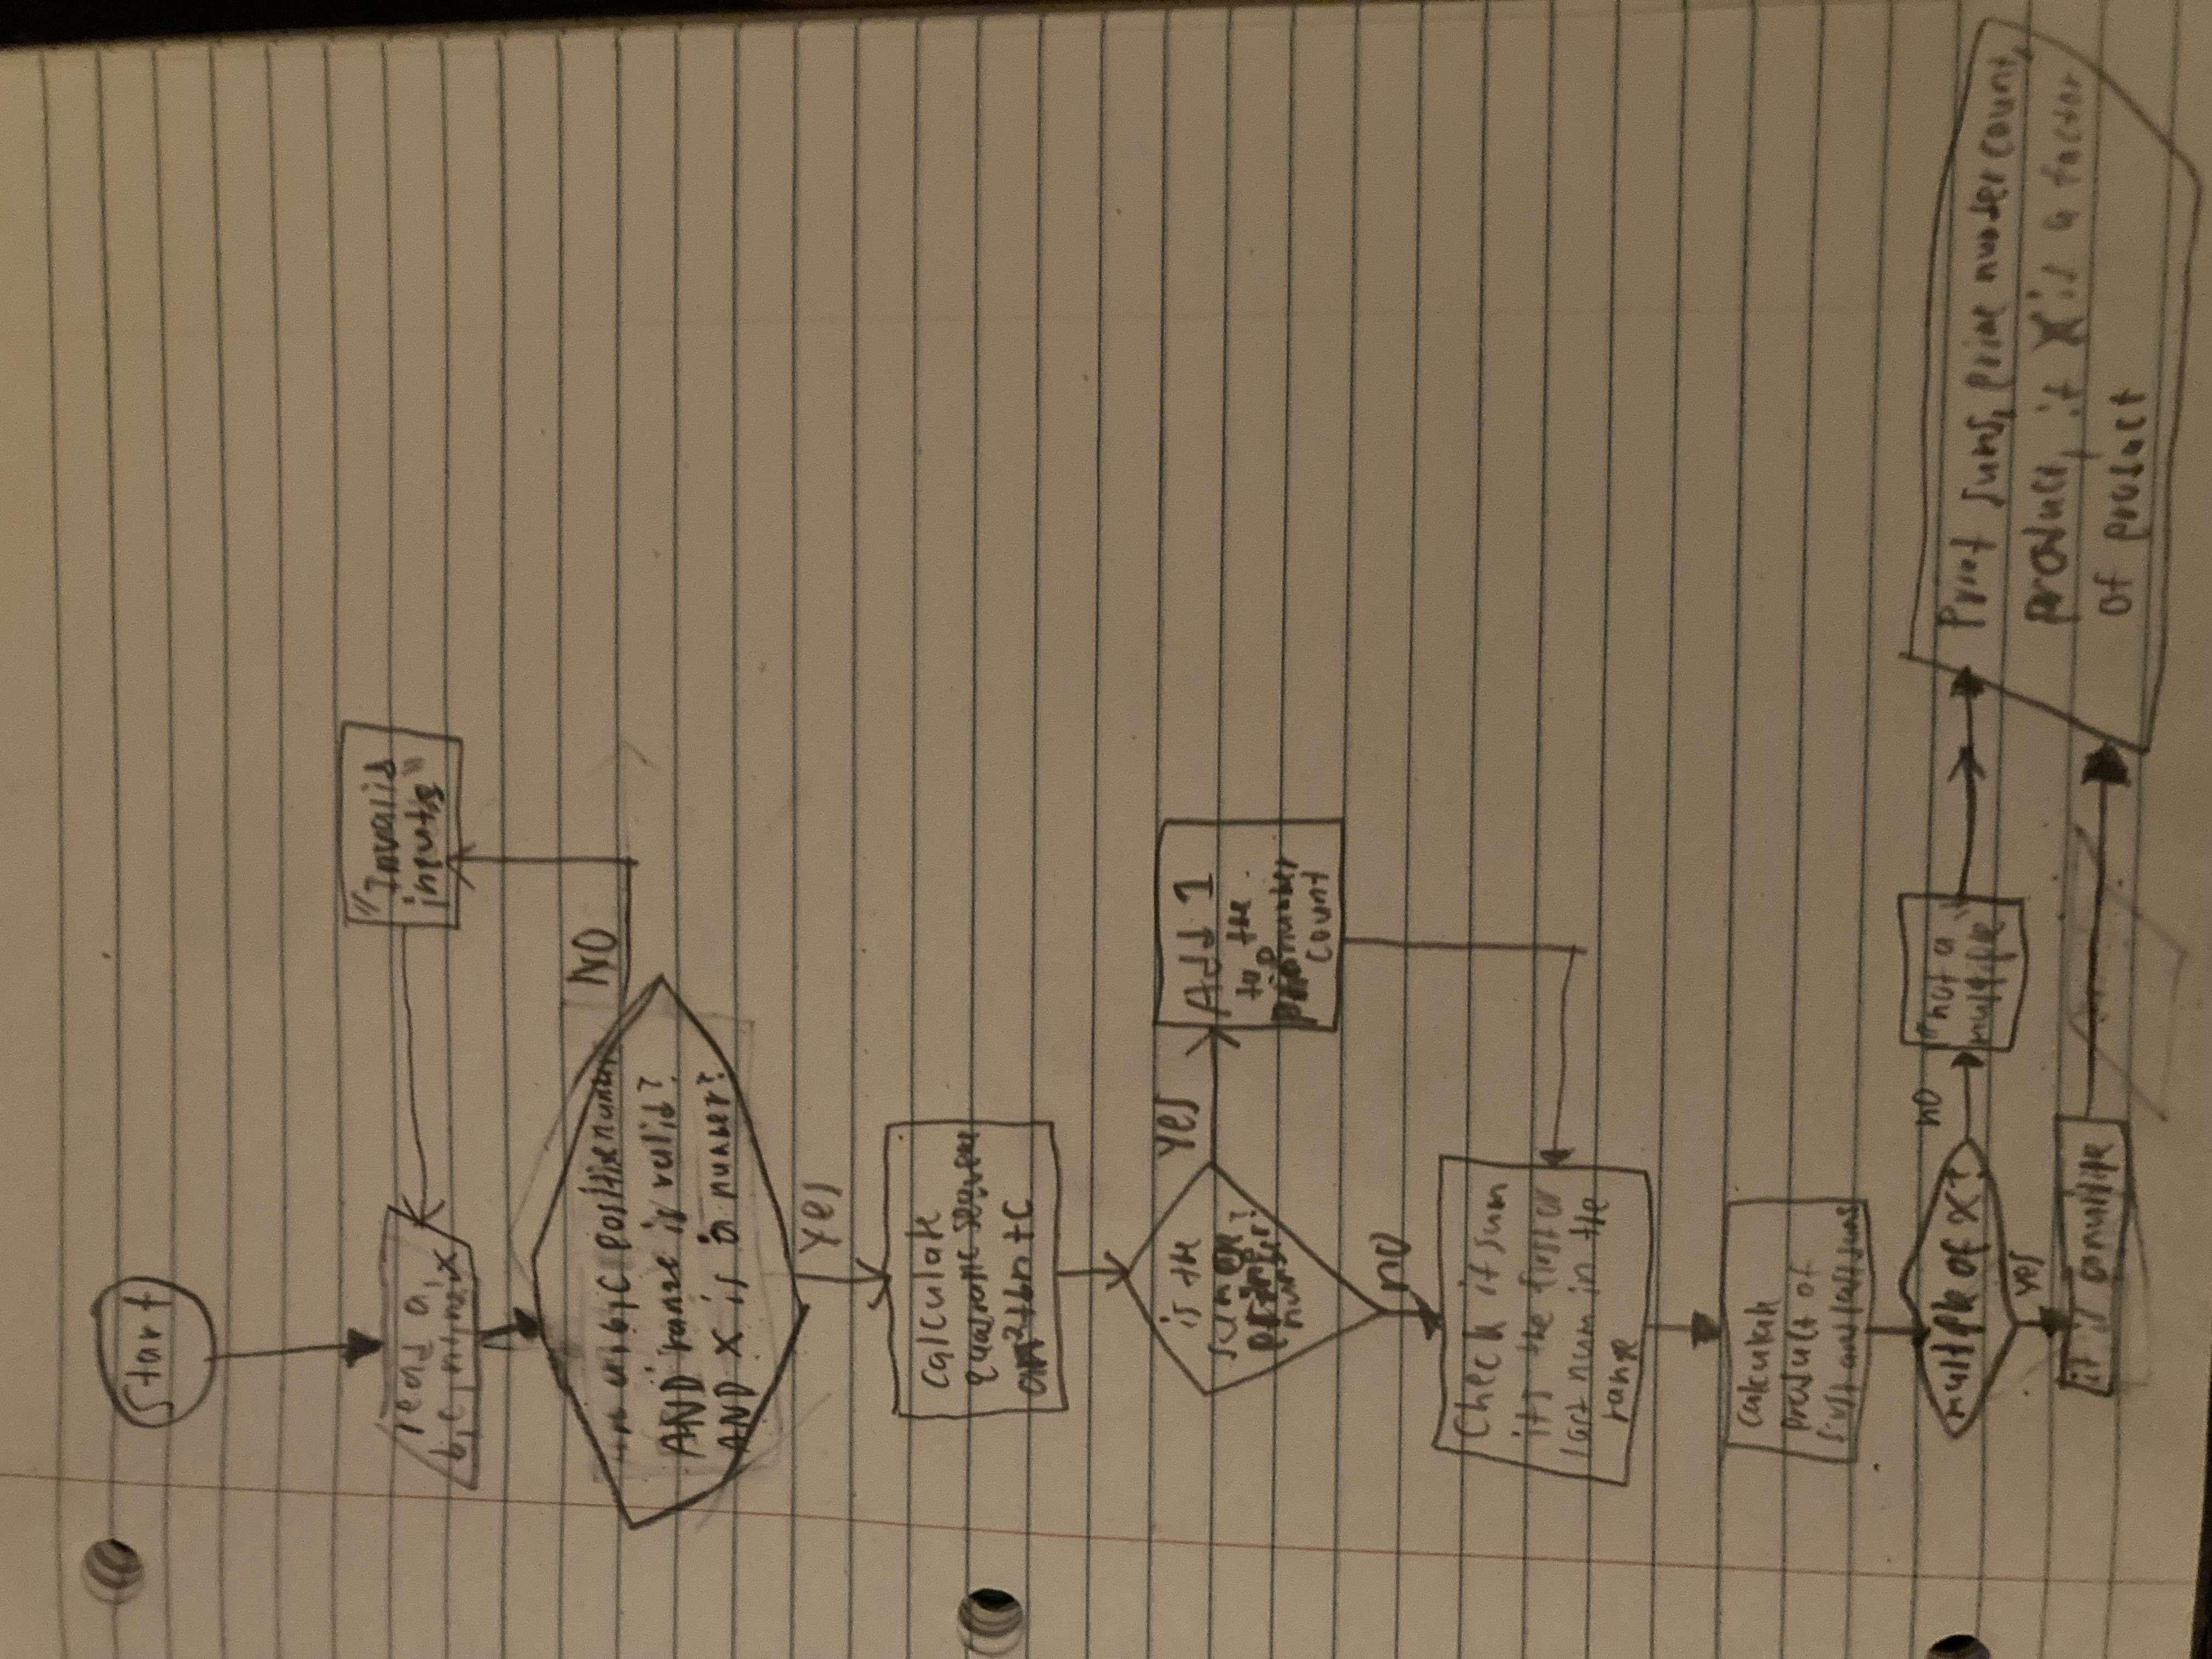 Start
read a,
b, c, n1, n2, x
"Invalid
inputs"
a, b, c positive number
AND range is valid?
AND x is a number?
NO
yes
calculate
quadratic sequence
an²+bn+c
is the
sum a
prime
number?
yes
Add 1
to the
number
count
no
Check if sum
its the first or
last num in the
range
calculate
product of
first and last sums
multiple of x?
no
"not a
multiple"
yes
it is a multiple
Print sums, prime number count,
product, if X is a factor
of product